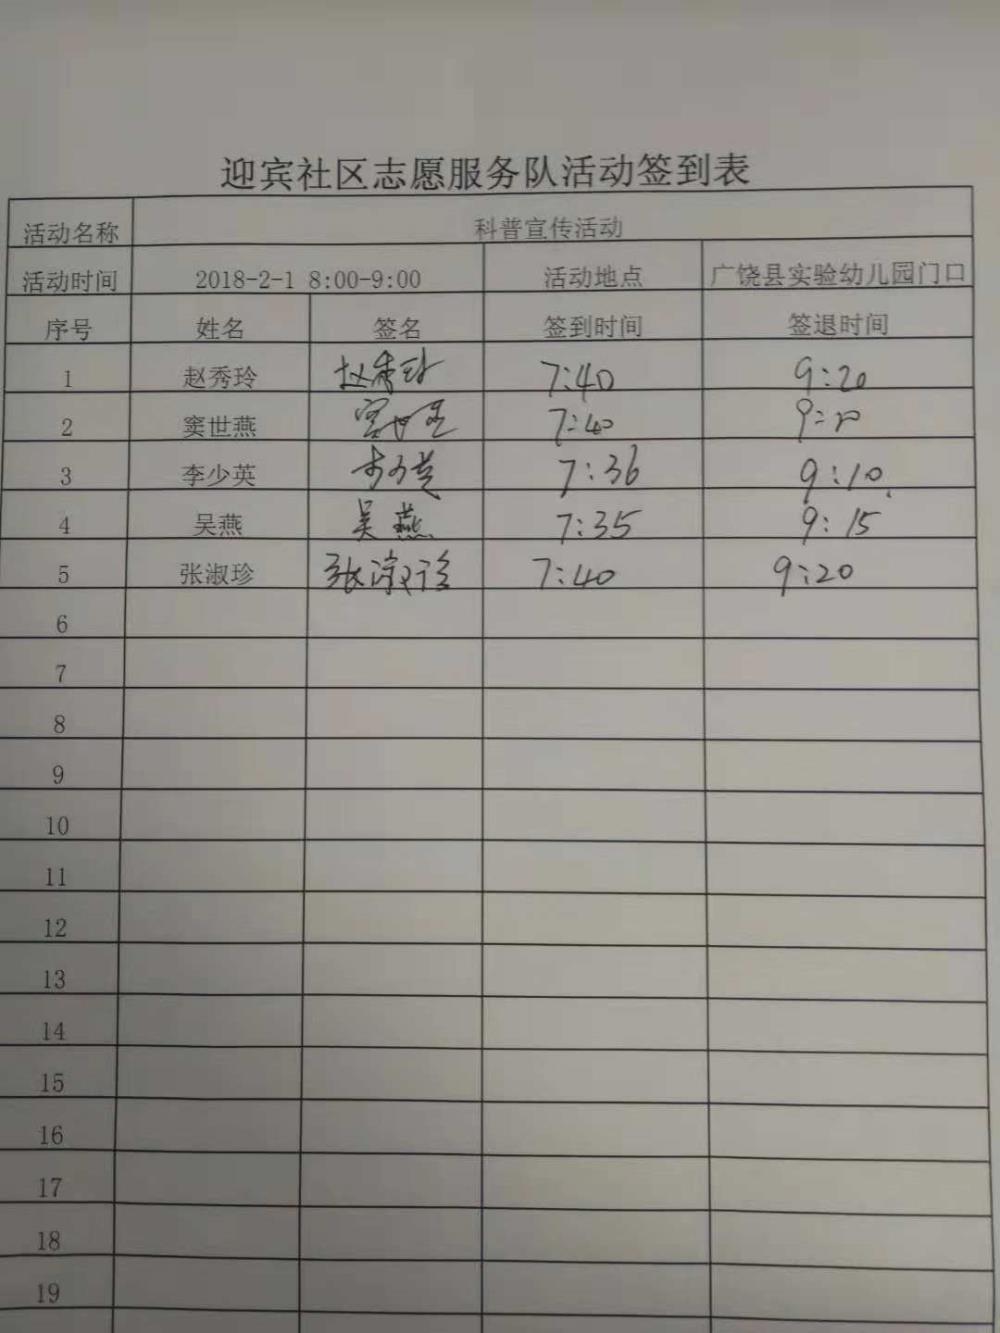 迎宾社区志愿服务队活动签到表
活动名称 科普宣传活动
活动时间 2018-2-1 8:00-9:00 活动地点 广饶县实验幼儿园门口
序号 姓名 签名 签到时间 签退时间
1 赵秀玲 赵秀玲 7:40 9:20
2 窦世燕 7:40 9:20
3 李少英 李少英 7:36 9:10
4 吴燕 吴燕 7:35 9:15
5 张淑珍 张淑珍 7:40 9:20
6
7
8
9
10
11
12
13
14
15
16
17
18
19